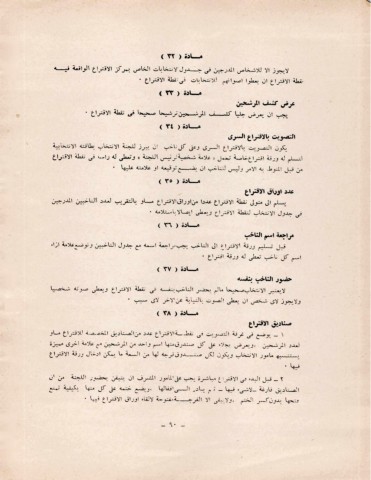 مادة ( ٣٢ )
لايجوز الا للاشخاص المدرجين في جدول الانتخابات الخاص بمركز الاقتراع الواقعة فيه
نقطة الاقتراع ان يعطوا اصواتهم للانتخابات في نقطة الاقتراع .
مادة ( ٣٣ )
عرض كشف المرشحين
يجب ان يعرض جليا كشف المرشحين ترشيحا صحيحا في نقطة الاقتراع .
مادة ( ٣٤ )
التصويت بالاقتراع السرى
يكون التصويت بالاقتراع السرى وعلى كل ناخب ان يبرز للجنة الانتخاب بطاقته الانتخابية
لتسلم له ورقة اقتراع خاصة تحمل علامة شخصية لرئيس اللجنة وتعطى له راسه في نقطة الاقتراع
من قبل المنوط به الامر وليس للناخب ان يضع توقيعه او علامته عليها .
مادة ( ٣٥ )
عدد اوراق الاقتراع
يسلم الى متولى نقطة الاقتراع عددا من اوراق الاقتراع مساو بالتقريب لعدد الناخبين المدرجين
في جدول الانتخاب لنقطة الاقتراع ويعطى ايصالا باستلامه .
مادة ( ٣٦ )
مراجعة اسم الناخب
قبل تسليم ورقة الاقتراع الى الناخب يجب مراجعة اسمه مع جدول الناخبين وتوضع علامة ازاء
اسم كل ناخب تعطى له ورقة اقتراع .
مادة ( ٣٧ )
حضور الناخب بنفسه
لايعتبر الانتخاب صحيحا مالم يحضر الناخب بنفسه في نقطة الاقتراع ويعطى صوته شخصيا
ولايجوز لاى شخص ان يعطى الصوت بالنيابة عن لاخر لاى سبب .
مادة ( ٣٨ )
صناديق الاقتراع
١ – يوضع في غرفة التصويت في نقطة الاقتراع عدد من الصناديق المخصصة للاقتراع مساو
لعدد المرشحين ، ويعرض بجلاء على كل صندوق منها اسم واحد من المرشحين مع علامة اخرى مميزة
يستنسبها مأمور الانتخاب ويكون لكل صندوق فرجة لها من السعة ما يمكن ادخال ورقة الاقتراع
فيها .
٢ – قبل البدء في الاقتراع مباشرة يجب على المأمور المشرف ان يتيقن بحضور اللجنة من ان
الصناديق فارغة لاشيء فيها – ثم يبادر الى اقفالها ، ويضع الختم على كل منها بكيفية تمنع
فتحها بدون كسر الختم ، ولايبقى الا الفرجة مفتوحة لالقاء اوراق الاقتراع فيها .
– ٦٠ –